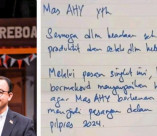 REBOA
Mas AHY yph
Semoga dlm keadaan sehat,
produktif dan selalu dlm
Melalui pesan singkat ini,
bermaksud menyampaikan
agar Mas AHY berkenan
menjadi pasangan dalam
pilpres 2024.